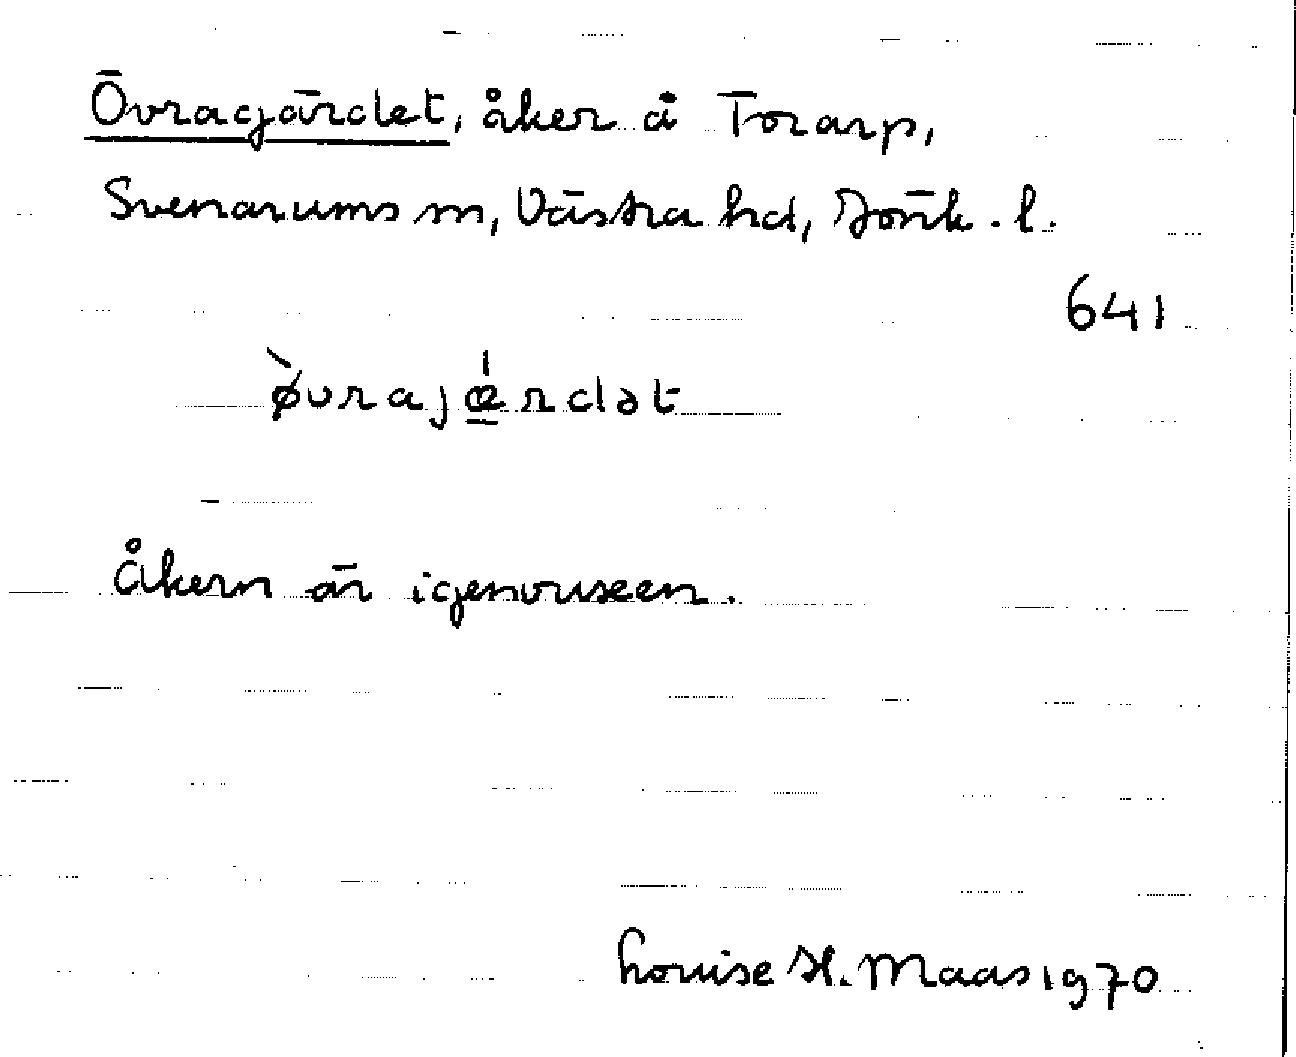 Övragärdet, åker å Torarp,
Svenarums sn, Västra hd, Jönk. l.
641
ø̀vrajǽ̲rdət
Åkern är igenvuxeen.
Louise H. Maas 1970